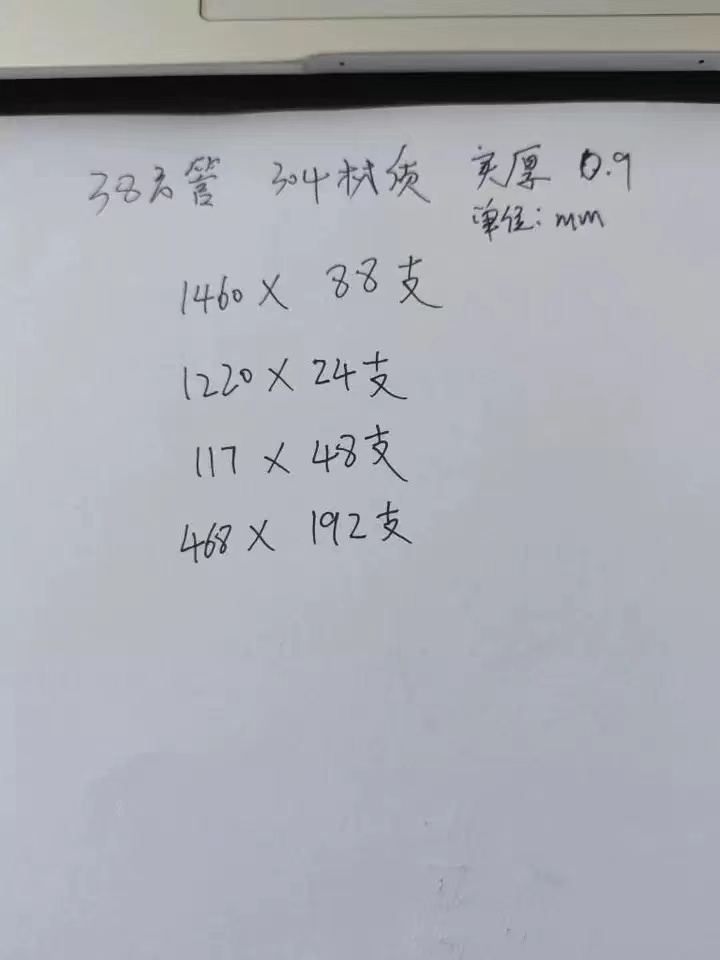 38方管 304材质 实厚 0.9
单位: mm
1460 X 88支
1220 X 24支
117 X 48支
468 X 192支